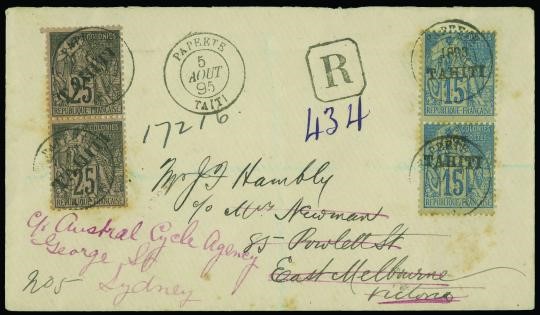 COLONIES
TAHITI
25
REPUBLIQUE FRANÇAISE
COLONIES
TAHITI
25
REPUBLIQUE FRANÇAISE
PAPEETE
5
AOUT
95
TAITI
R
434
17216.
PAPEETE
TAHITI
15
REPUBLIQUE FRANÇAISE
PAPEETE
TAHITI
15
REPUBLIQUE FRANÇAISE
Mr J D Hambly
c/o Mrs Newman
85 Powlett St
East Melbourne
Victoria
c/o Austral Cycle Agency
George St
Sydney
205